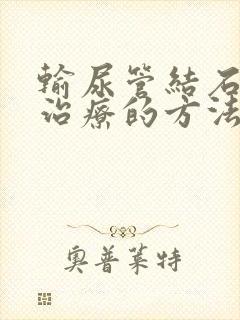 輸尿管結石
治療的方法
奧普萊特